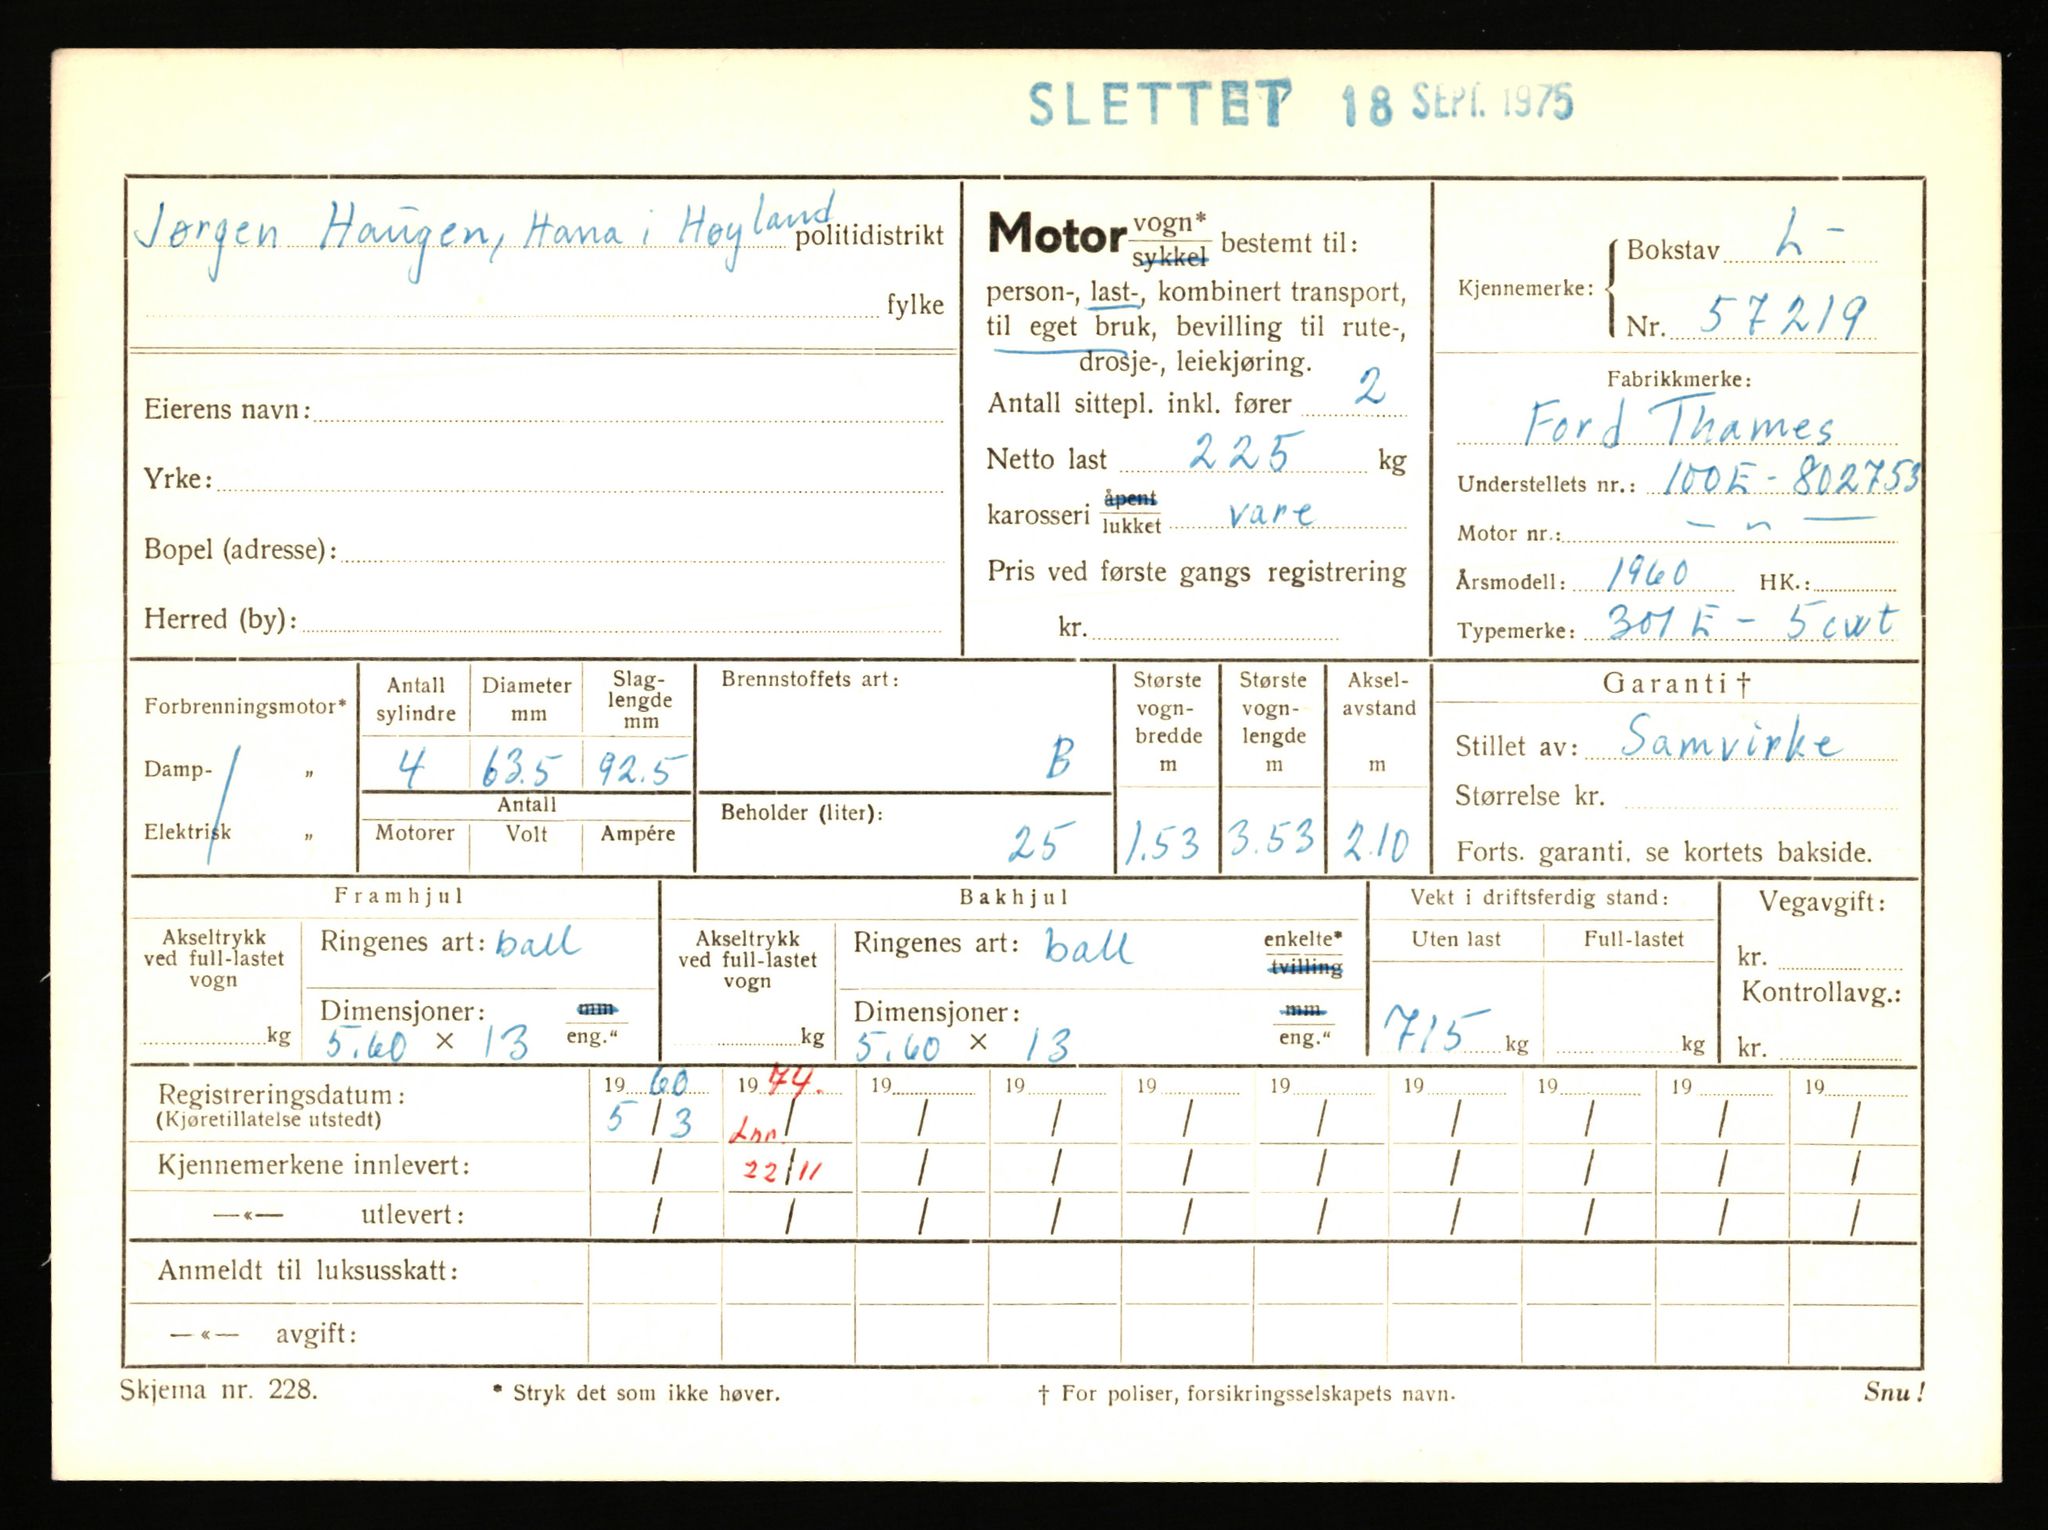 SLETTET 18 SEPT. 1975
Jørgen Haugen, Hana i Høyland politidistrikt
fylke
Eierens navn:
Yrke:
Bopel (adresse):
Herred (by):
Motor vogn* sykkel bestemt til:
person-, last-, kombinert transport,
til eget bruk, bevilling til rute-,
drosje-, leiekjøring.
Antall sittepl. inkl. fører 2
Netto last 225 kg
karosseri åpent lukket vare
Pris ved første gangs registrering
kr.
Kjennemerke: Bokstav L-
Nr. 57219
Fabrikkmerke:
Ford Thames
Understellets nr.: 100E-802753
Motor nr.: — „ —
Årsmodell: 1960 HK.:
Typemerke: 301E - 5cwt
Forbrenningsmotor*
Damp- „
Elektrisk „
Antall sylindre
Diameter mm
Slag-lengde mm
4 63.5 92.5
Antall
Motorer Volt Ampére
Brennstoffets art:
B
Beholder (liter):
25
Største vogn-bredde m
1.53
Største vogn-lengde m
3.53
Aksel-avstand m
2.10
Garanti †
Stillet av: Samvirke
Størrelse kr.
Forts. garanti, se kortets bakside.
Framhjul
Akseltrykk ved full-lastet vogn
kg
Ringenes art: ball
Dimensjoner: mm
5.60 × 13 eng."
Bakhjul
Akseltrykk ved full-lastet vogn
kg
Ringenes art: ball enkelte* tvilling
Dimensjoner: mm
5.60 × 13 eng."
Vekt i driftsferdig stand:
Uten last Full-lastet
715 kg kg
Vegavgift:
kr.
Kontrollavg.:
kr.
Registreringsdatum: 19 60 19 74. 19 19 19 19 19 19 19 19
(Kjøretillatelse utstedt) 5/3 / / / / / / / / /
Kjennemerkene innlevert: / 22/11 / / / / / / / /
—«— utlevert: / / / / / / / / / /
Anmeldt til luksusskatt:
—«— avgift:
Skjema nr. 228. * Stryk det som ikke høver. † For poliser, forsikringsselskapets navn. Snu!